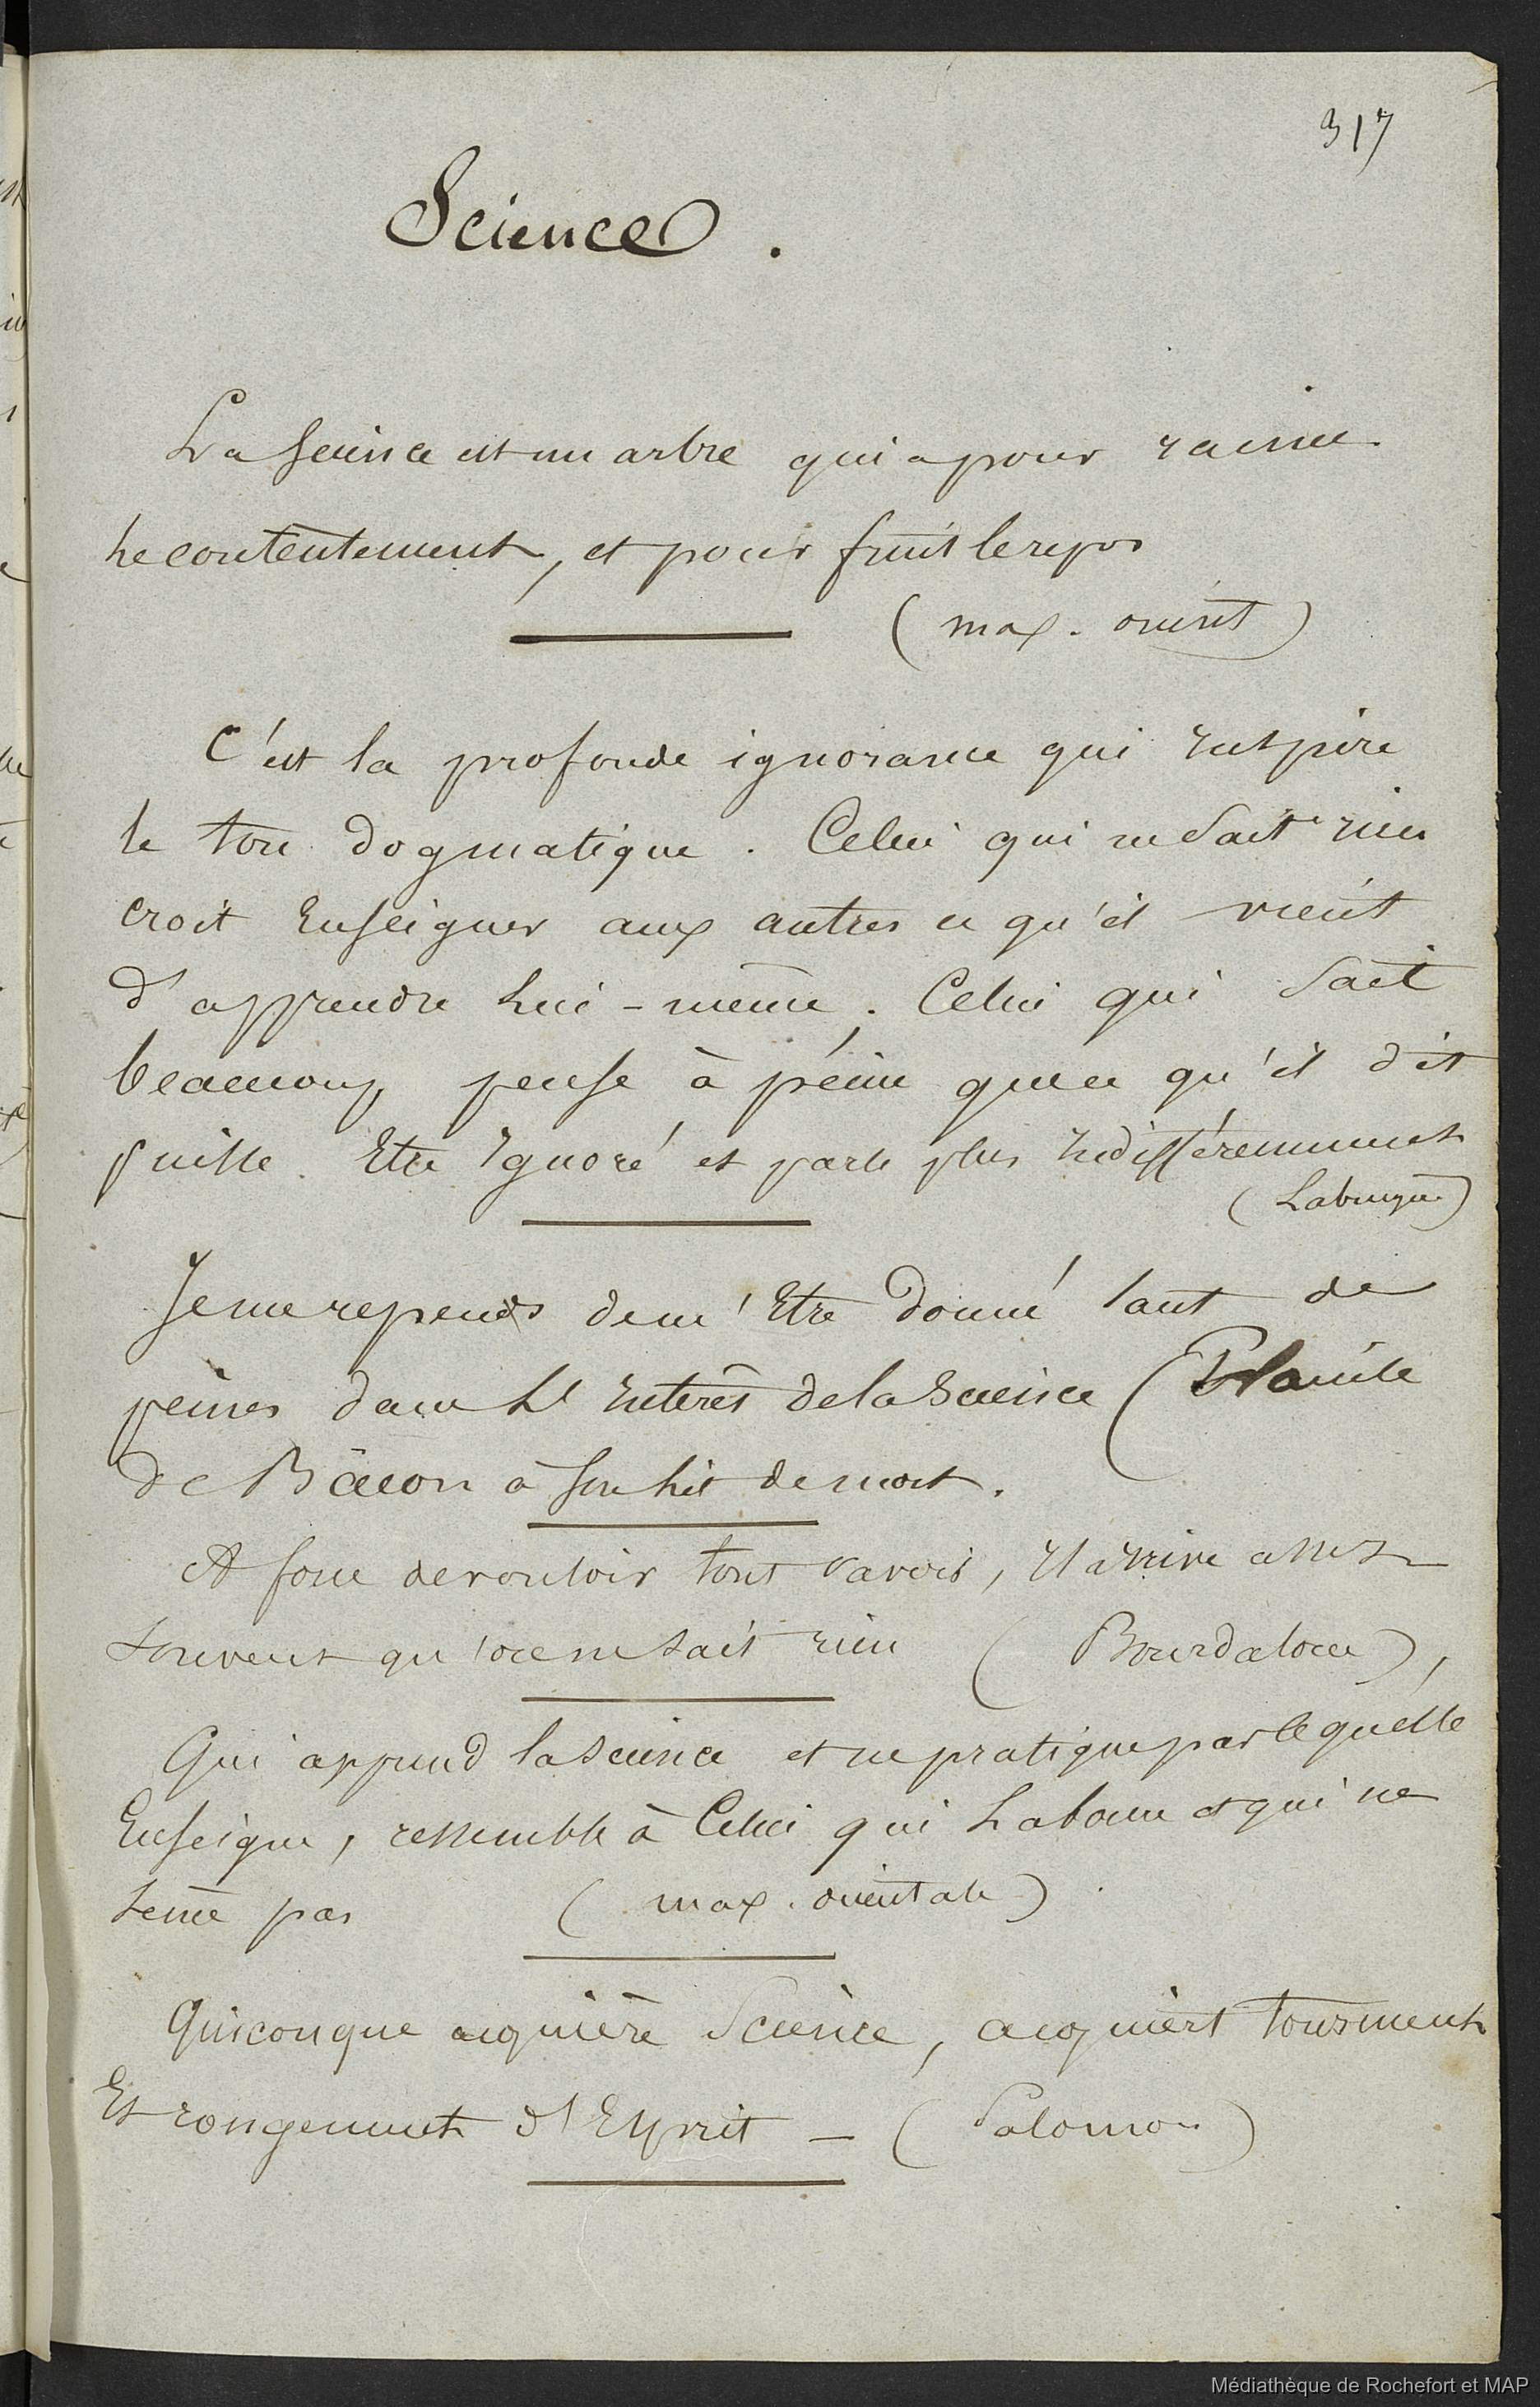 317
Science.
La science est un arbre qui a pour racine
le contentement, et pour fruit le repos
(max. orient)
C'est la profonde ignorance qui inspire
le ton dogmatique. Celui qui ne sait rien
croit Enseigner aux autres ce qu'il vient
d'apprendre lui-même. Celui qui sait
beaucoup pense à peine que ce qu'il dit
puisse Etre Ignoré et parle plus indifféremment
(Labruyère)
Je me repends de m'Etre donné tant de
peines dans l'intérêt de la Science (Plainte
de Bâcon à son lit de mort.
A force de vouloir tout savoir, il arrive assez
souvent qu'on ne sait rien (Bourdaloue),
Qui apprend la science et ne pratique pas ce qu'elle
Enseigne, ressemble à Celui qui Laboure et qui ne
sème pas (max. orientale)
Quiconque acquière Science, acquiert tourment
Et rongement d'Esprit - (Salomon)
Médiathèque de Rochefort et MAP